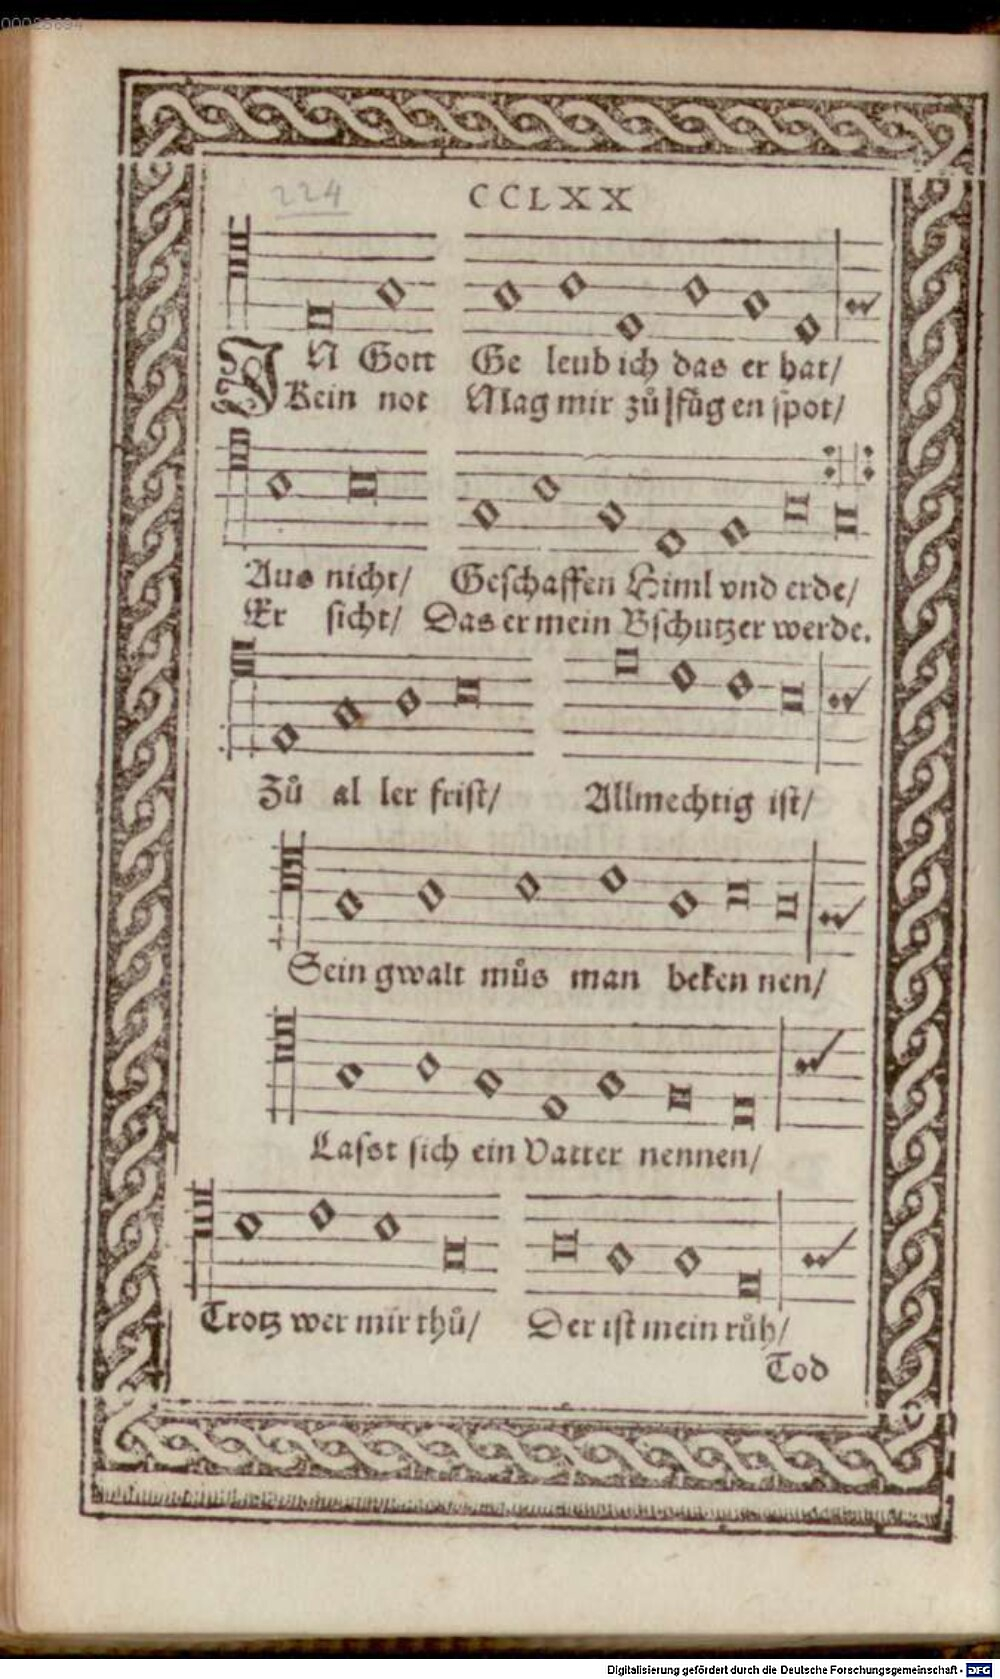 00026694
224
CCLXX
IN Gott Ge leub ich das er hat/
Kein not Mag mir zů fůg en spot/
Aus nicht/ Geschaffen Himl vnd erde/
Er sicht/ Das er mein Bschutzer werde.
Zů al ler frist/ Allmechtig ist/
Sein gwalt můs man beken nen/
Lasst sich ein Vatter nennen/
Trotz wer mir thů/ Der ist mein růh/
Tod
Digitalisierung gefördert durch die Deutsche Forschungsgemeinschaft - DFG